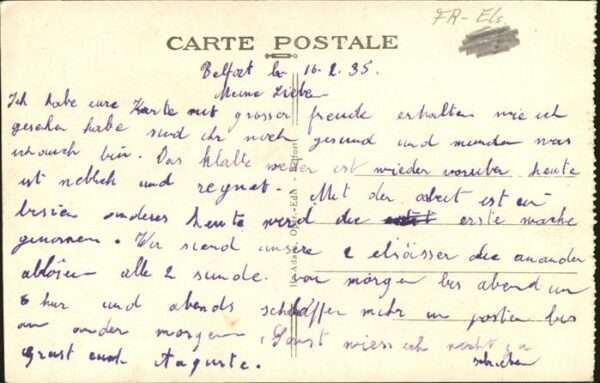 FR-Els
CARTE POSTALE
Belfort le 16.2.35.
Meine Lieben
Ich habe eure Karte mit grosser freude erhalten wie ich
gesehen habe sind ihr noch gesund und munden was
ich auch bin. Das klatte weter ist wieder voruber heute
ist neblich und regnet. Met der arbeit est ein
bisien anderes heute werd die erste wache
genomen. Wir siend unsere 2 elsässer die anander
ablösen alle 2 stunde. von morgen bes abend um
6 hur und abends schlaffen mehr im posten bes
am ander morgen. Sonst wiess ich necht zu
schreiben
Grust euch Auguste.